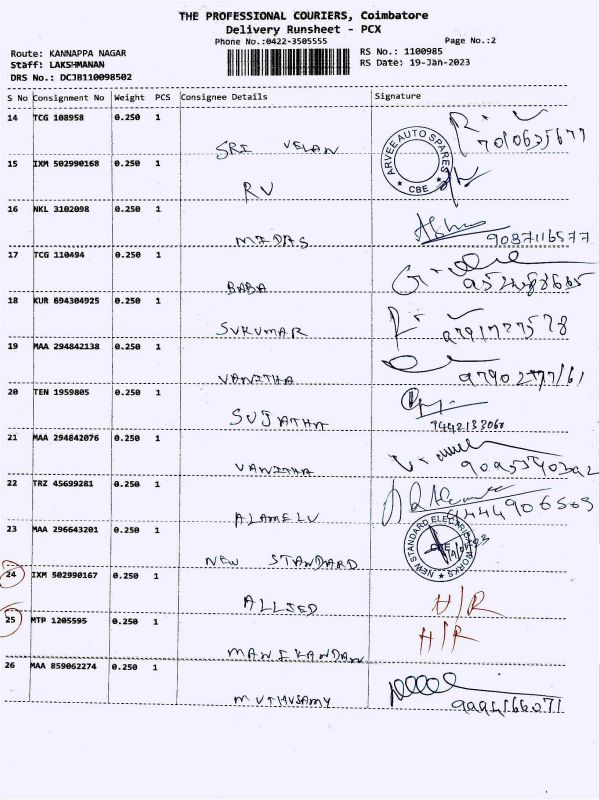 THE PROFESSIONAL COURIERS, Coimbatore
Delivery Runsheet - PCX
Phone No.:0422-3505555 Page No.:2
Route: KANNAPPA NAGAR RS No.: 1100985
Staff: LAKSHMANAN RS Date: 19-Jan-2023
DRS No.: DCJB110098502
S No Consignment No Weight PCS Consignee Details Signature
14 TCG 108958 0.250 1
SRI VELAN
15 IXM 502990168 0.250 1
RV ARVEE AUTO SPARES CBE
16 NKL 3102098 0.250 1
MIDAS 9087116577
17 TCG 110494 0.250 1
BABA
18 KUR 694304925 0.250 1
SUKUMAR
19 MAA 294842138 0.250 1
VANITHA
20 TEN 1959805 0.250 1
SUJATHA
21 MAA 294842076 0.250 1
VANITHA
22 TRZ 45699281 0.250 1
ALAMELU
23 MAA 296643201 0.250 1
NEW STANDARD NEW STANDARD ELECTRIC WORKS
24 IXM 502990167 0.250 1
ALLIED H/R
25 MTP 1205595 0.250 1 H/R
MANIKANDAN
26 MAA 859062274 0.250 1
MUTHUSAMY 9994166071